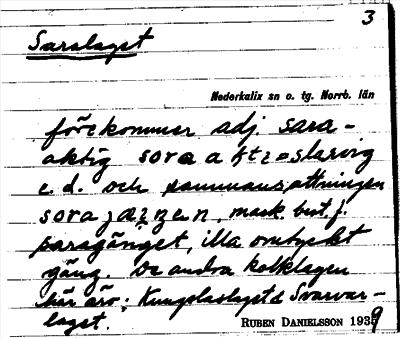 3
Saralaget
Nederkalix sn o. tg. Norrb. län
förekommer adj sara-
aktig slarvig
e. d. och sammansättningen
mask. best. f.
saragänget, illa omtyckt
gäng. De andra kolklagen
här äro: Kungslaget & Svarvar-
laget.
RUBEN DANIELSSON 1939